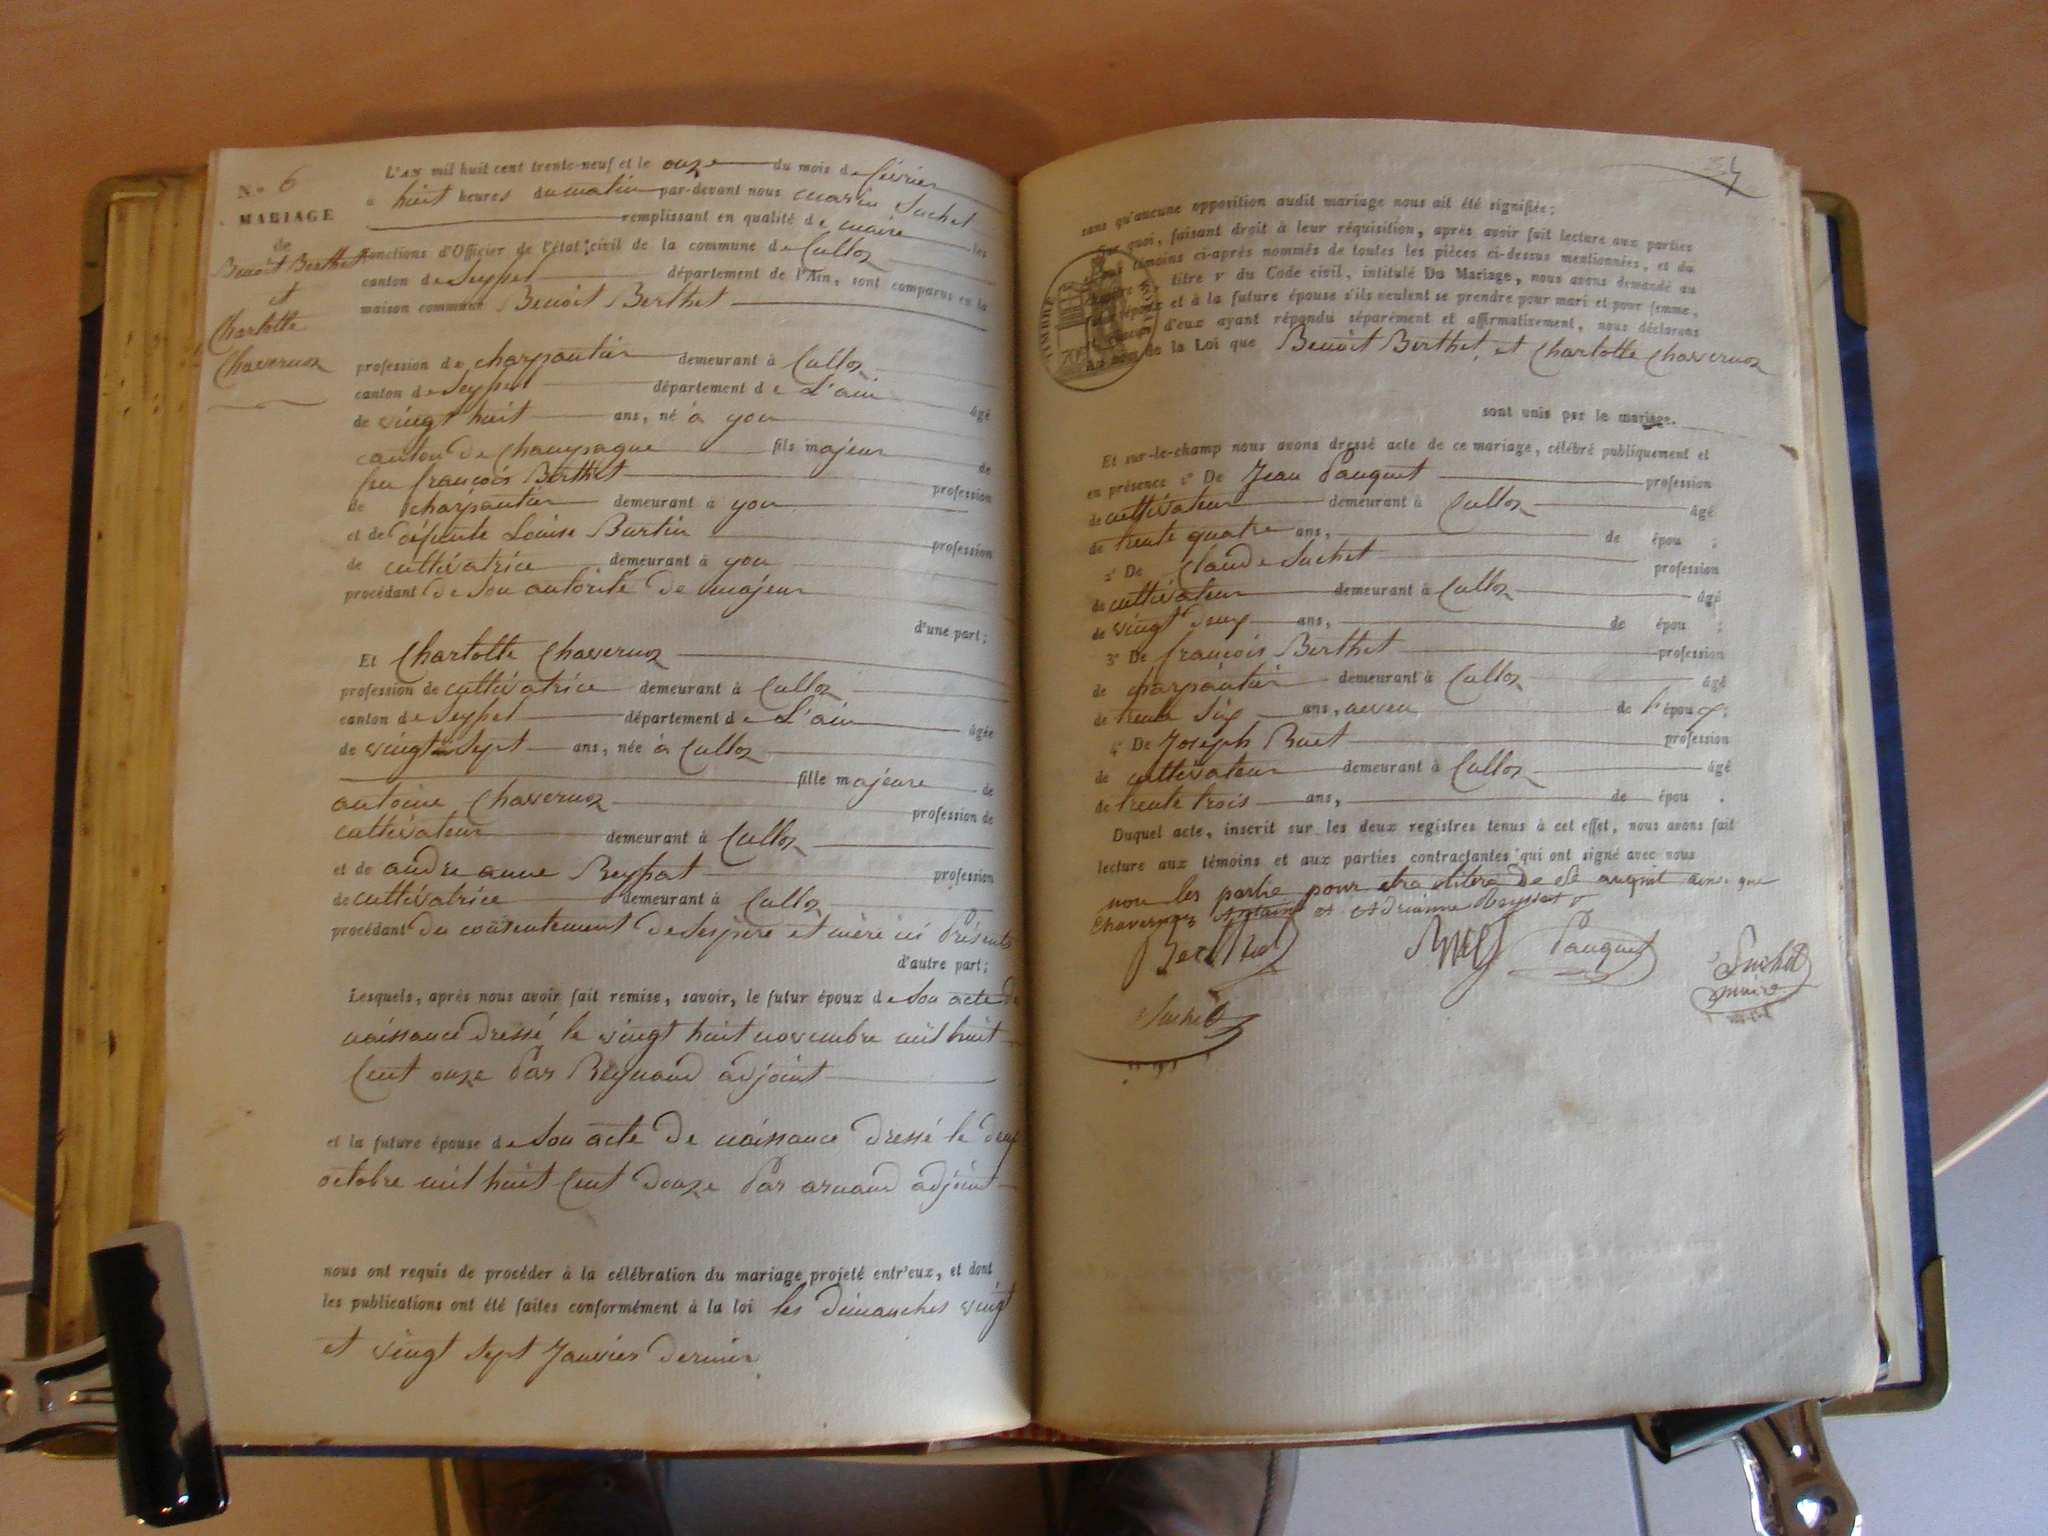 N.º 6
MARIAGE
de
Benoît Berthet
et
Charlotte
Chavernoz
L'AN mil huit cent trente-neuf et le onze du mois de février
à huit heures du matin par-devant nous marin Suchet
remplissant en qualité de maire les
fonctions d'Officier de l'état civil de la commune de Culloz
canton de Seyssel département de l'Ain, sont comparus en la
maison commune Benoît Berthet
profession de charpantier demeurant à Culloz
canton de Seyssel département de L'ain âgé
de vingt huit ans, né à yon
canton de Champagne fils majeur de
feu françois Berthet profession
de charpantier demeurant à yon
et de défunte Louise Burtin profession
de cultivatrice demeurant à yon
procédant de son autorité de majeur
d'une part;
Et Charlotte Chavernoz
profession de cultivatrice demeurant à Culloz
canton de Seyssel département de L'ain âgée
de vingt sept ans, née à Culloz
fille majeure de
antoine Chavernoz profession de
cultivateur demeurant à Culloz
et de andreanne Reyssat profession
de cultivatrice demeurant à Culloz
procédant du contentement de ses père et mère ici présents
d'autre part;
Lesquels, après nous avoir fait remise, savoir, le futur époux de son acte de
naissance dressé le vingt huit novembre mil huit
Cent onze Par Reynaud adjoint
et la future épouse de son acte de naissance dressé le deux
octobre mil huit Cent douze Par arnaud adjoint
nous ont requis de procéder à la célébration du mariage projeté entr'eux, et dont
les publications ont été faites conformément à la loi les dimanches vingt
et vingt sept Janvier dernier
34
sans qu'aucune opposition audit mariage nous ait été signifiée;
Sur quoi, faisant droit à leur réquisition, après avoir fait lecture aux parties
et aux témoins ci-après nommés de toutes les pièces ci-dessus mentionnées, et du
chapitre VI titre V du Code civil, intitulé Du Mariage, nous avons demandé au
futur époux et à la future épouse s'ils veulent se prendre pour mari et pour femme,
et chacun d'eux ayant répondu séparément et affirmativement, nous déclarons
au nom de la Loi que Benoît Berthet et Charlotte Chavernoz
TIMBRE
sont unis par le mariage.
Et sur-le-champ nous avons dressé acte de ce mariage, célébré publiquement et
en présence 1º De Jean Pauquet profession
de cultivateur demeurant à Culloz âgé
de trente quatre ans, de épou ;
2º De Claude Suchet profession
de cultivateur demeurant à Culloz âgé
de vingt deux ans, de épou ;
3º De françois Berthet profession
de charpantier demeurant à Culloz âgé
de trente Six ans, de l'époux ;
4º De Joseph Buet profession
de cultivateur demeurant à Culloz âgé
de trente trois ans, de épou .
Duquel acte, inscrit sur les deux registres tenus à cet effet, nous avons fait
lecture aux témoins et aux parties contractantes qui ont signé avec nous
non les partie pour etre de ainsi que
Chavernoz Antoine et Adrianne Reyssat
Berthet Buet Pauquet Suchet
maire
Suchet